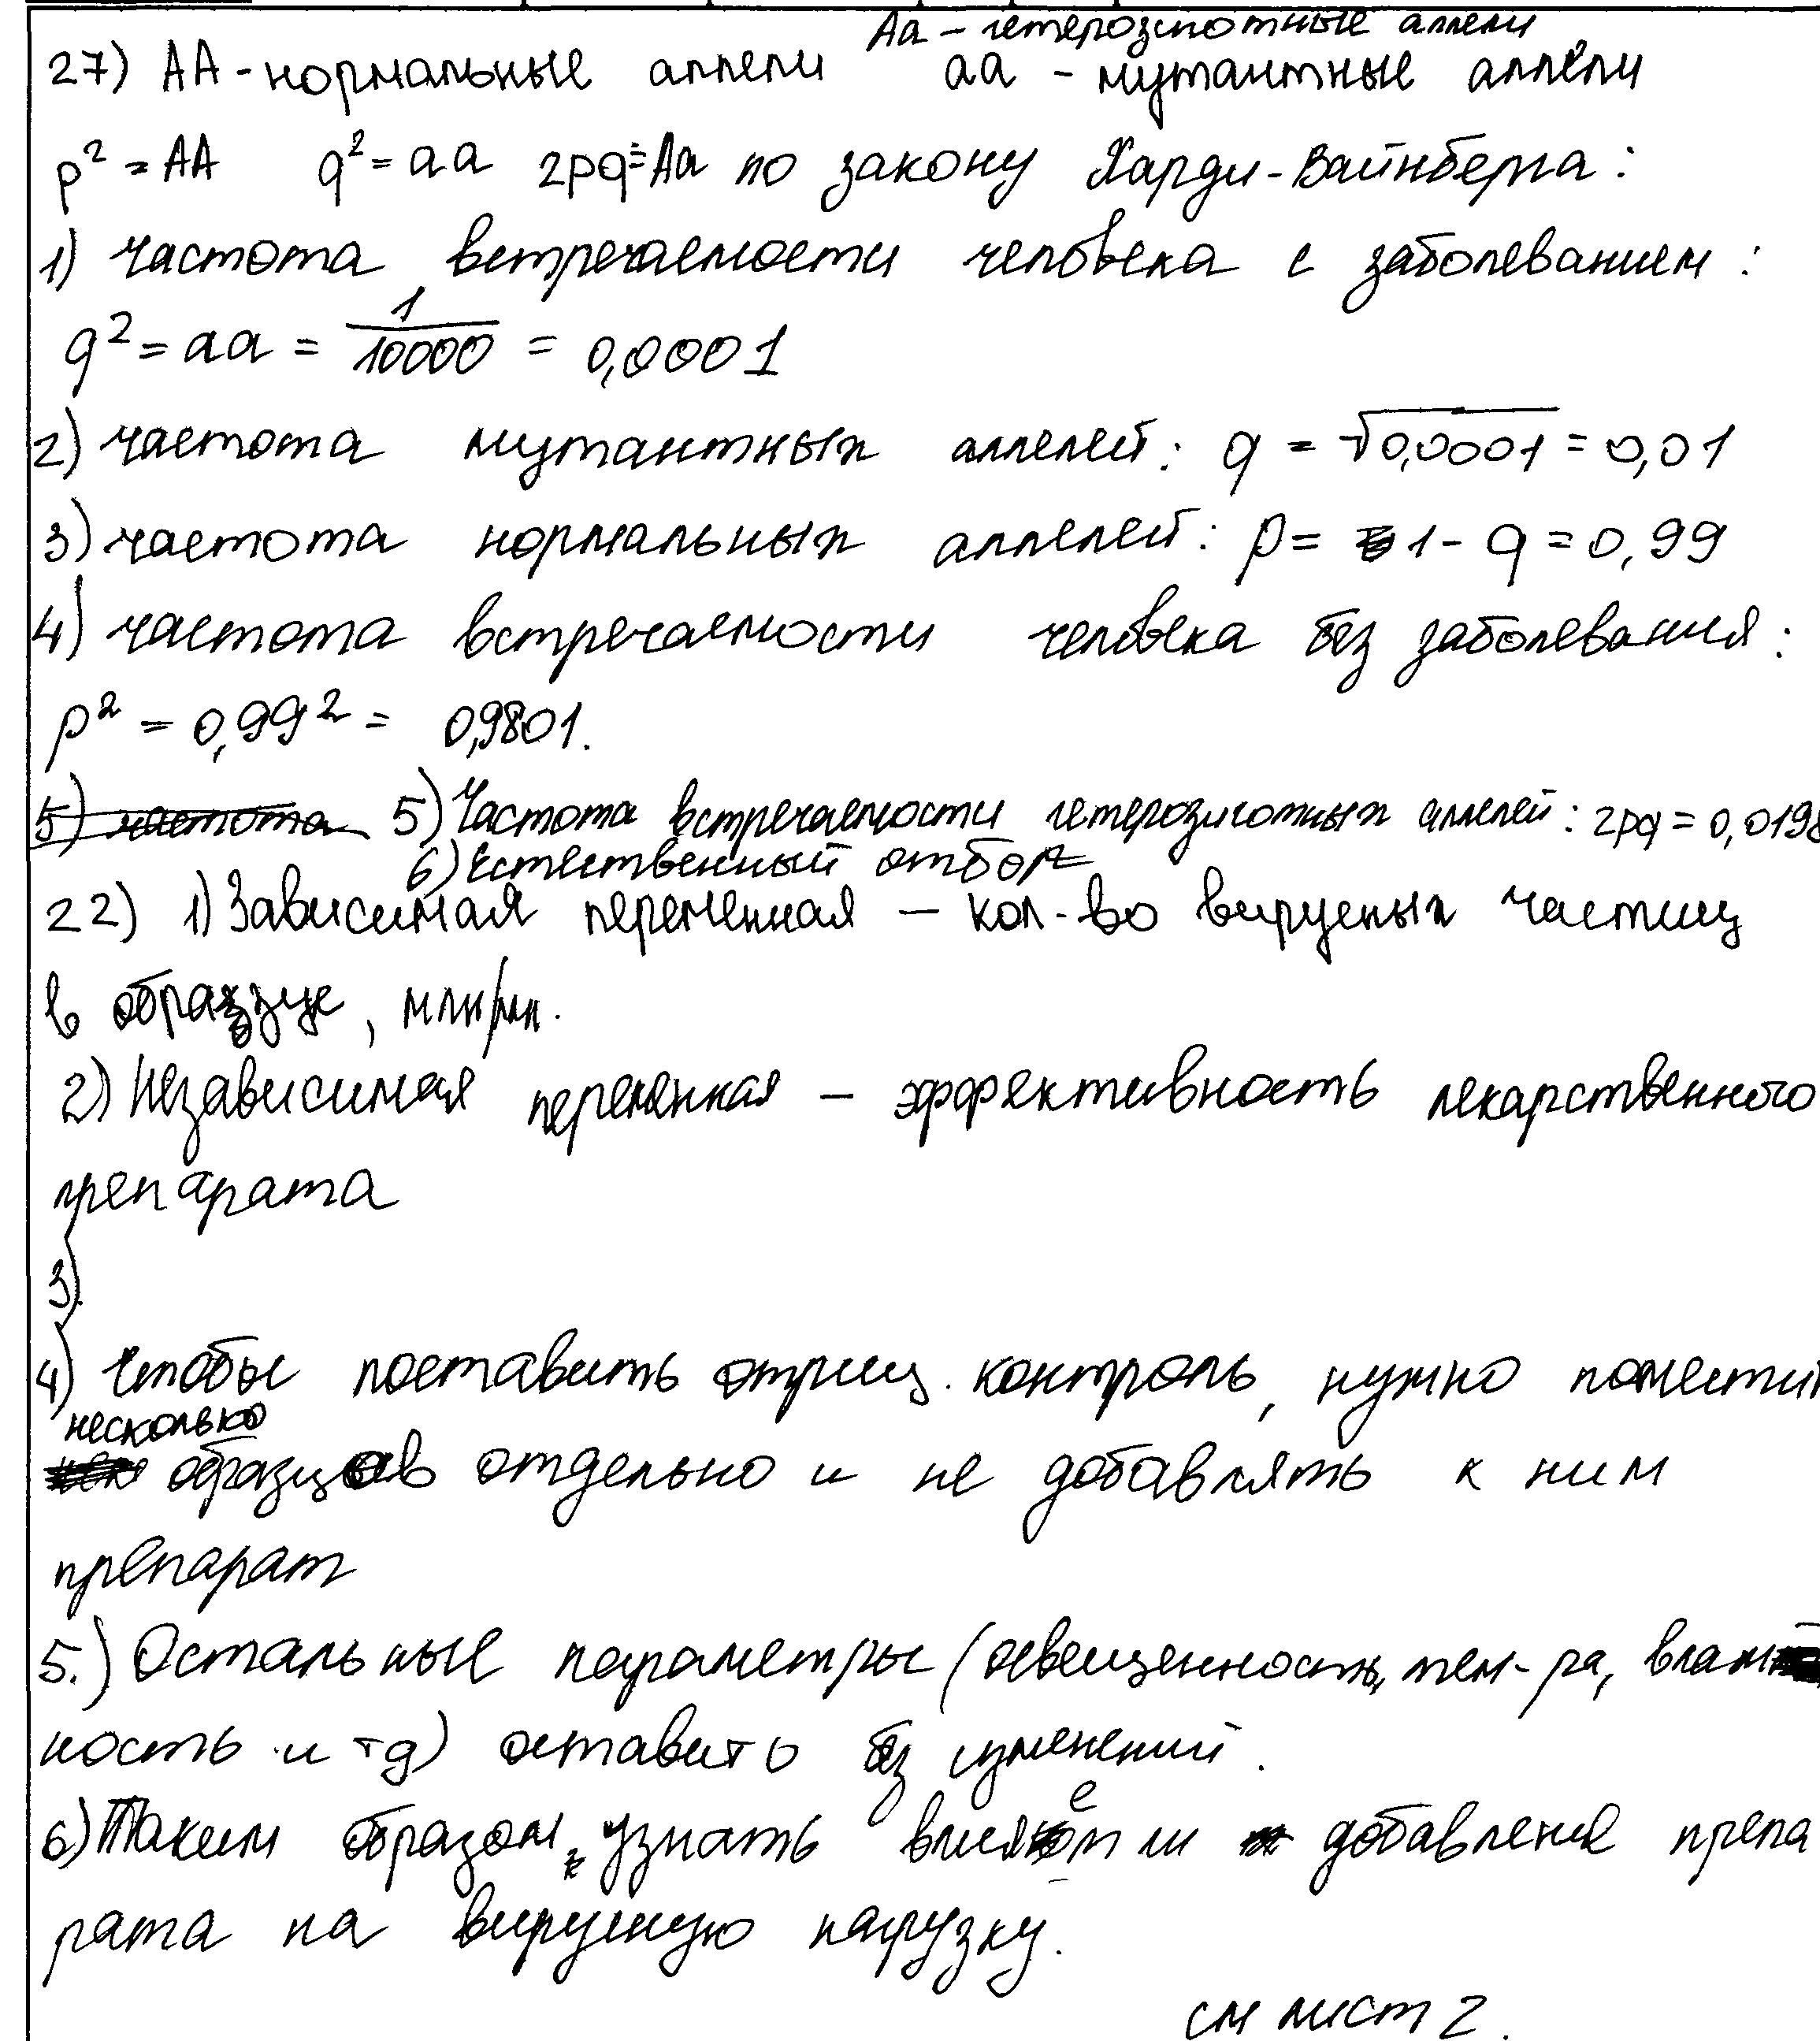 Аа – гетерозиготные аллели
27) АА - нормальные аллели аа - мутантные аллели
p² = АА q² = аа 2pq = Аа по закону Харди-Вайнберга:
1) частота встречаемости человека с заболеванием:
q² = аа = 1/10000 = 0,0001
2) частота мутантных аллелей: q = √0,0001 = 0,01
3) частота нормальных аллелей: p = 1 - q = 0,99
4) частота встречаемости человека без заболевания:
p² = 0,99² = 0,9801.
5) частота 5) Частота встречаемости гетерозиготных аллелей: 2pq = 0,0198
6) Естественный отбор
22) 1) Зависимая переменная – кол-во вирусных частиц
в образце, млн/мл.
2) Независимая переменная – эффективность лекарственного
препарата
3)
4) Чтобы поставить отриц. контроль, нужно поместить
несколько
образцов отдельно и не добавлять к ним
препарат
5.) Остальные параметры (освещенность, тем-ра, влаж
ность и тд) оставить без изменений.
6) Таким образом, узнать влияет ли добавление препа
рата на вирусную нагрузку.
см лист 2.